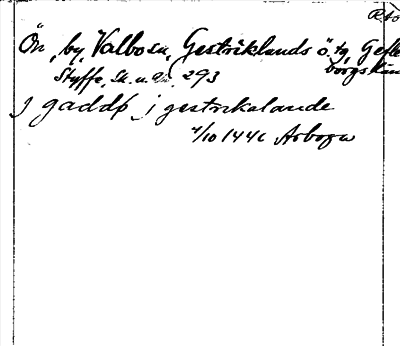 R.to
Ön, by, Valbo sn, Gestriklands ö. tg, Gefle
borgs län
Styffe, Sk. u. Un. 293
j gaddø j gestrikalande
1/10 1446 Arboga